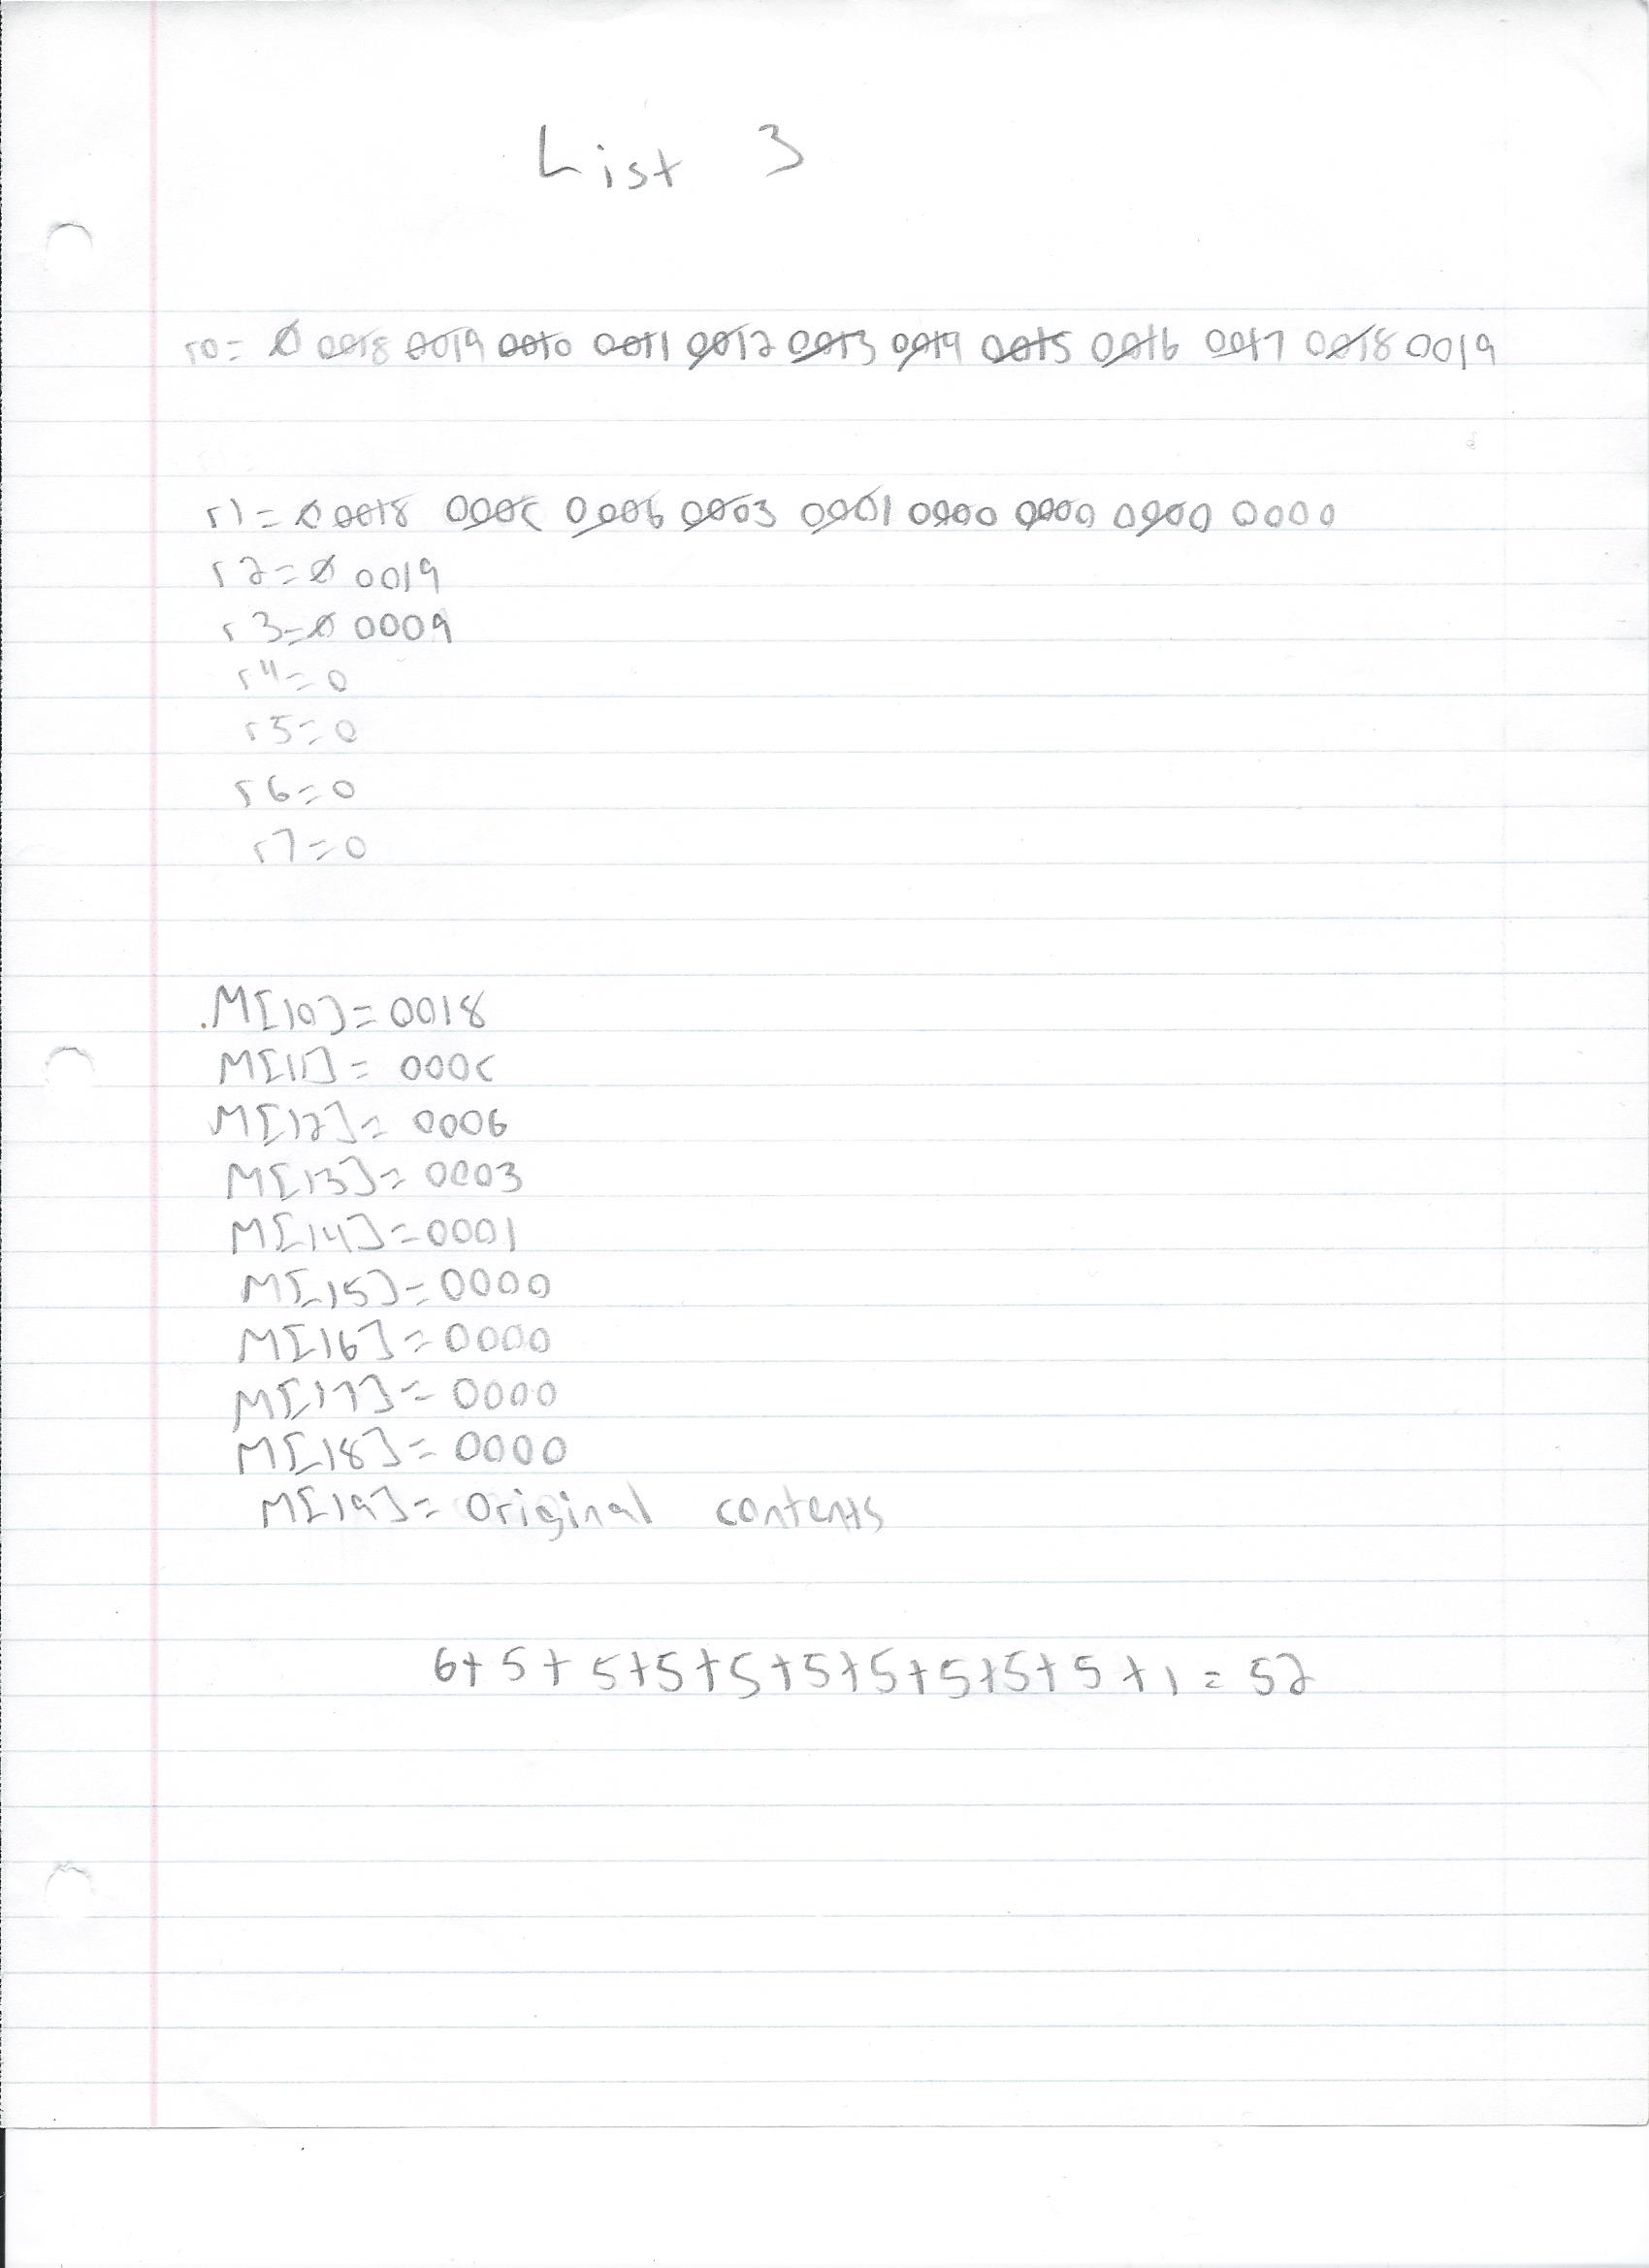 List 3
r0= 0 0018 0019 0010 0011 0012 0013 0014 0015 0016 0017 0018 0019
r1= 0 0018 000C 0006 0003 0001 0000 0000 0000 0000
r2=0 0019
r3=0 0009
r4=0
r5=0
r6=0
r7=0
M[10]=0018
M[11]= 000C
M[12]= 0006
M[13]= 0003
M[14]=0001
M[15]=0000
M[16]=0000
M[17]= 0000
M[18]= 0000
M[19]= Original contents
6+5+5+5+5+5+5+5+5+5+1=52